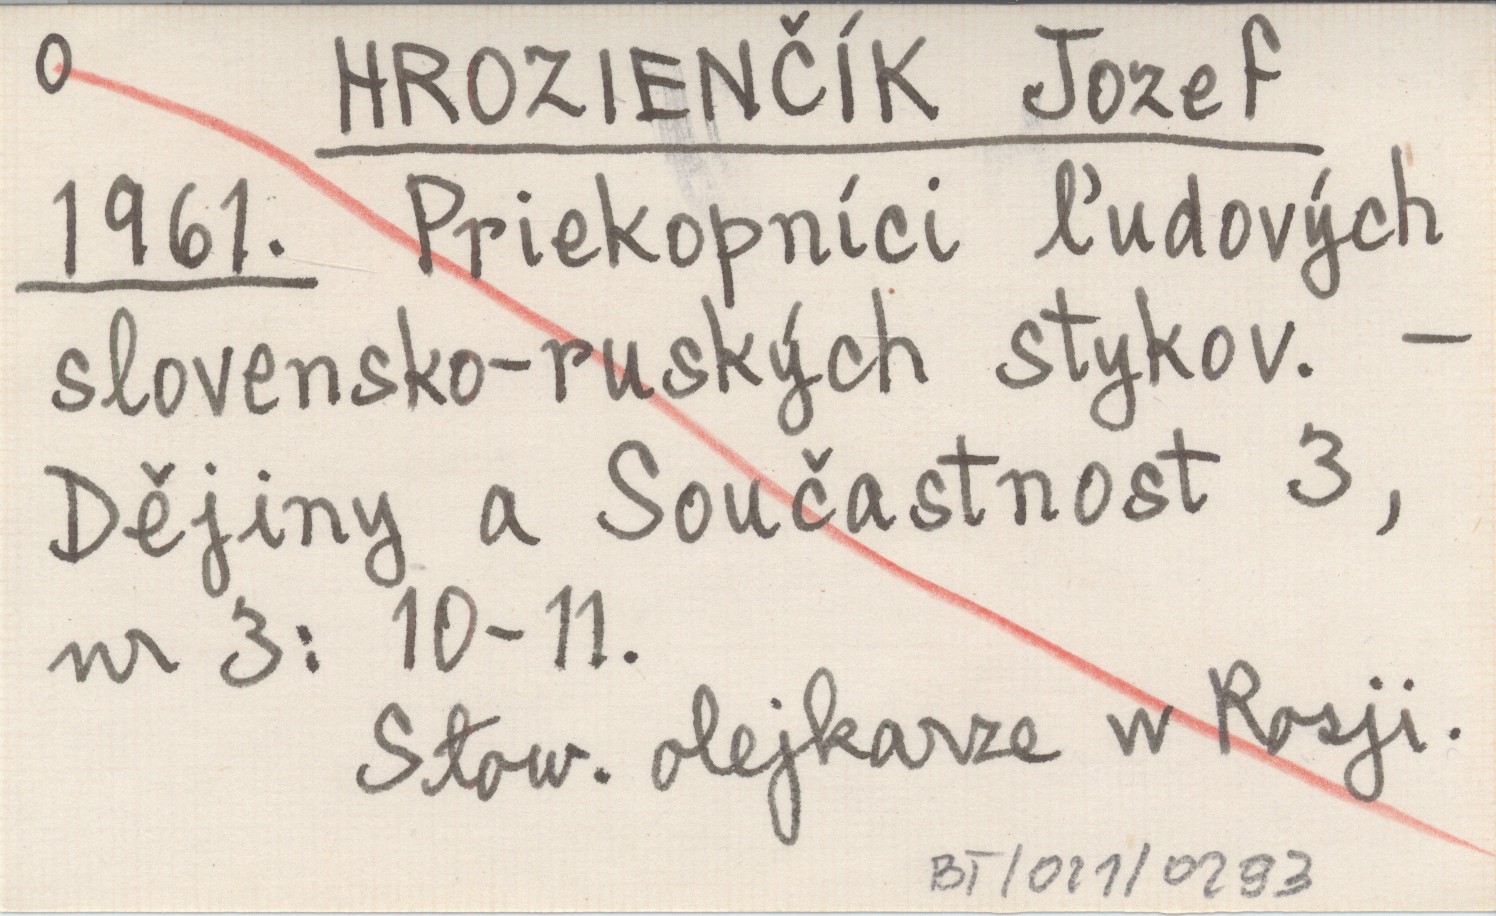 O HROZIENČÍK Jozef
1961. Priekopníci ľudových
slovensko-ruských stykov. –
Dějiny a Součastnost 3,
nr 3: 10-11.
Słow. olejkarze w Rosji.
BT/021/0293